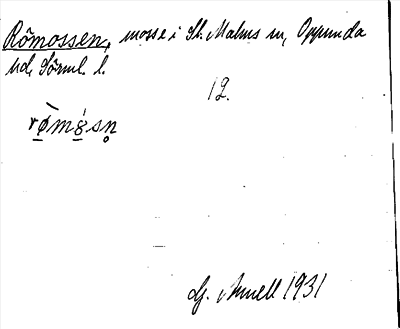 Römossen, mosse i St. Malms sn, Oppunda
hd, Sörml. l.
12.
rø̀mǿsn̥
G. Anell 1931